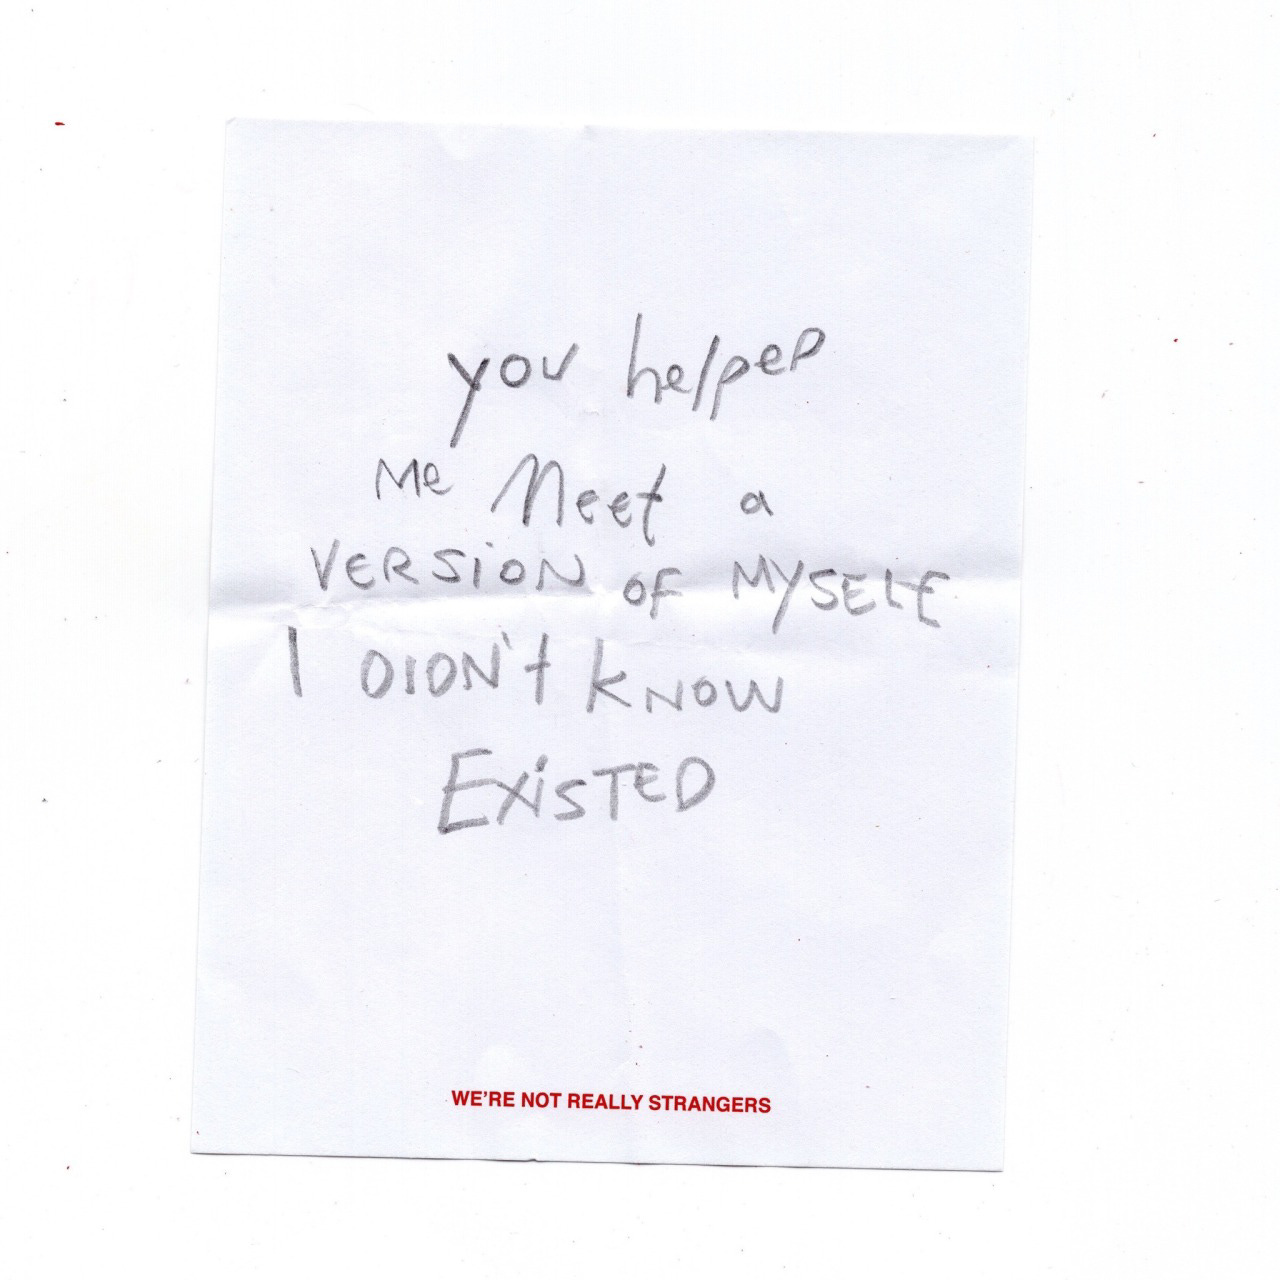 you helped
Me Meet a
VERSiON OF MYSELF
I DIDN't kNOW
ExiSTED
WE'RE NOT REALLY STRANGERS